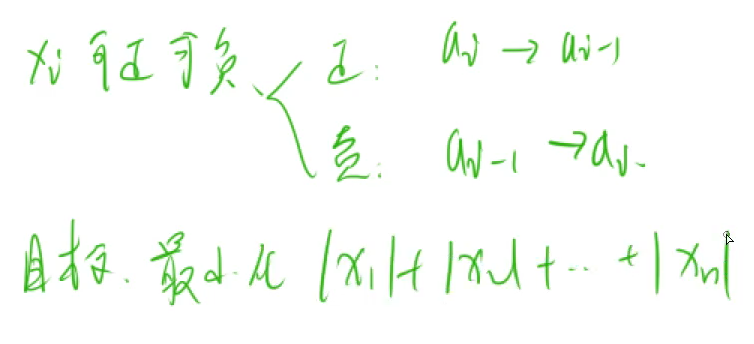 xᵢ 可正可负 正: aᵢ → aᵢ₋₁
负: aᵢ₋₁ → aᵢ.
目标. 最小化 |x₁|+|x₂|+…+|xₙ|